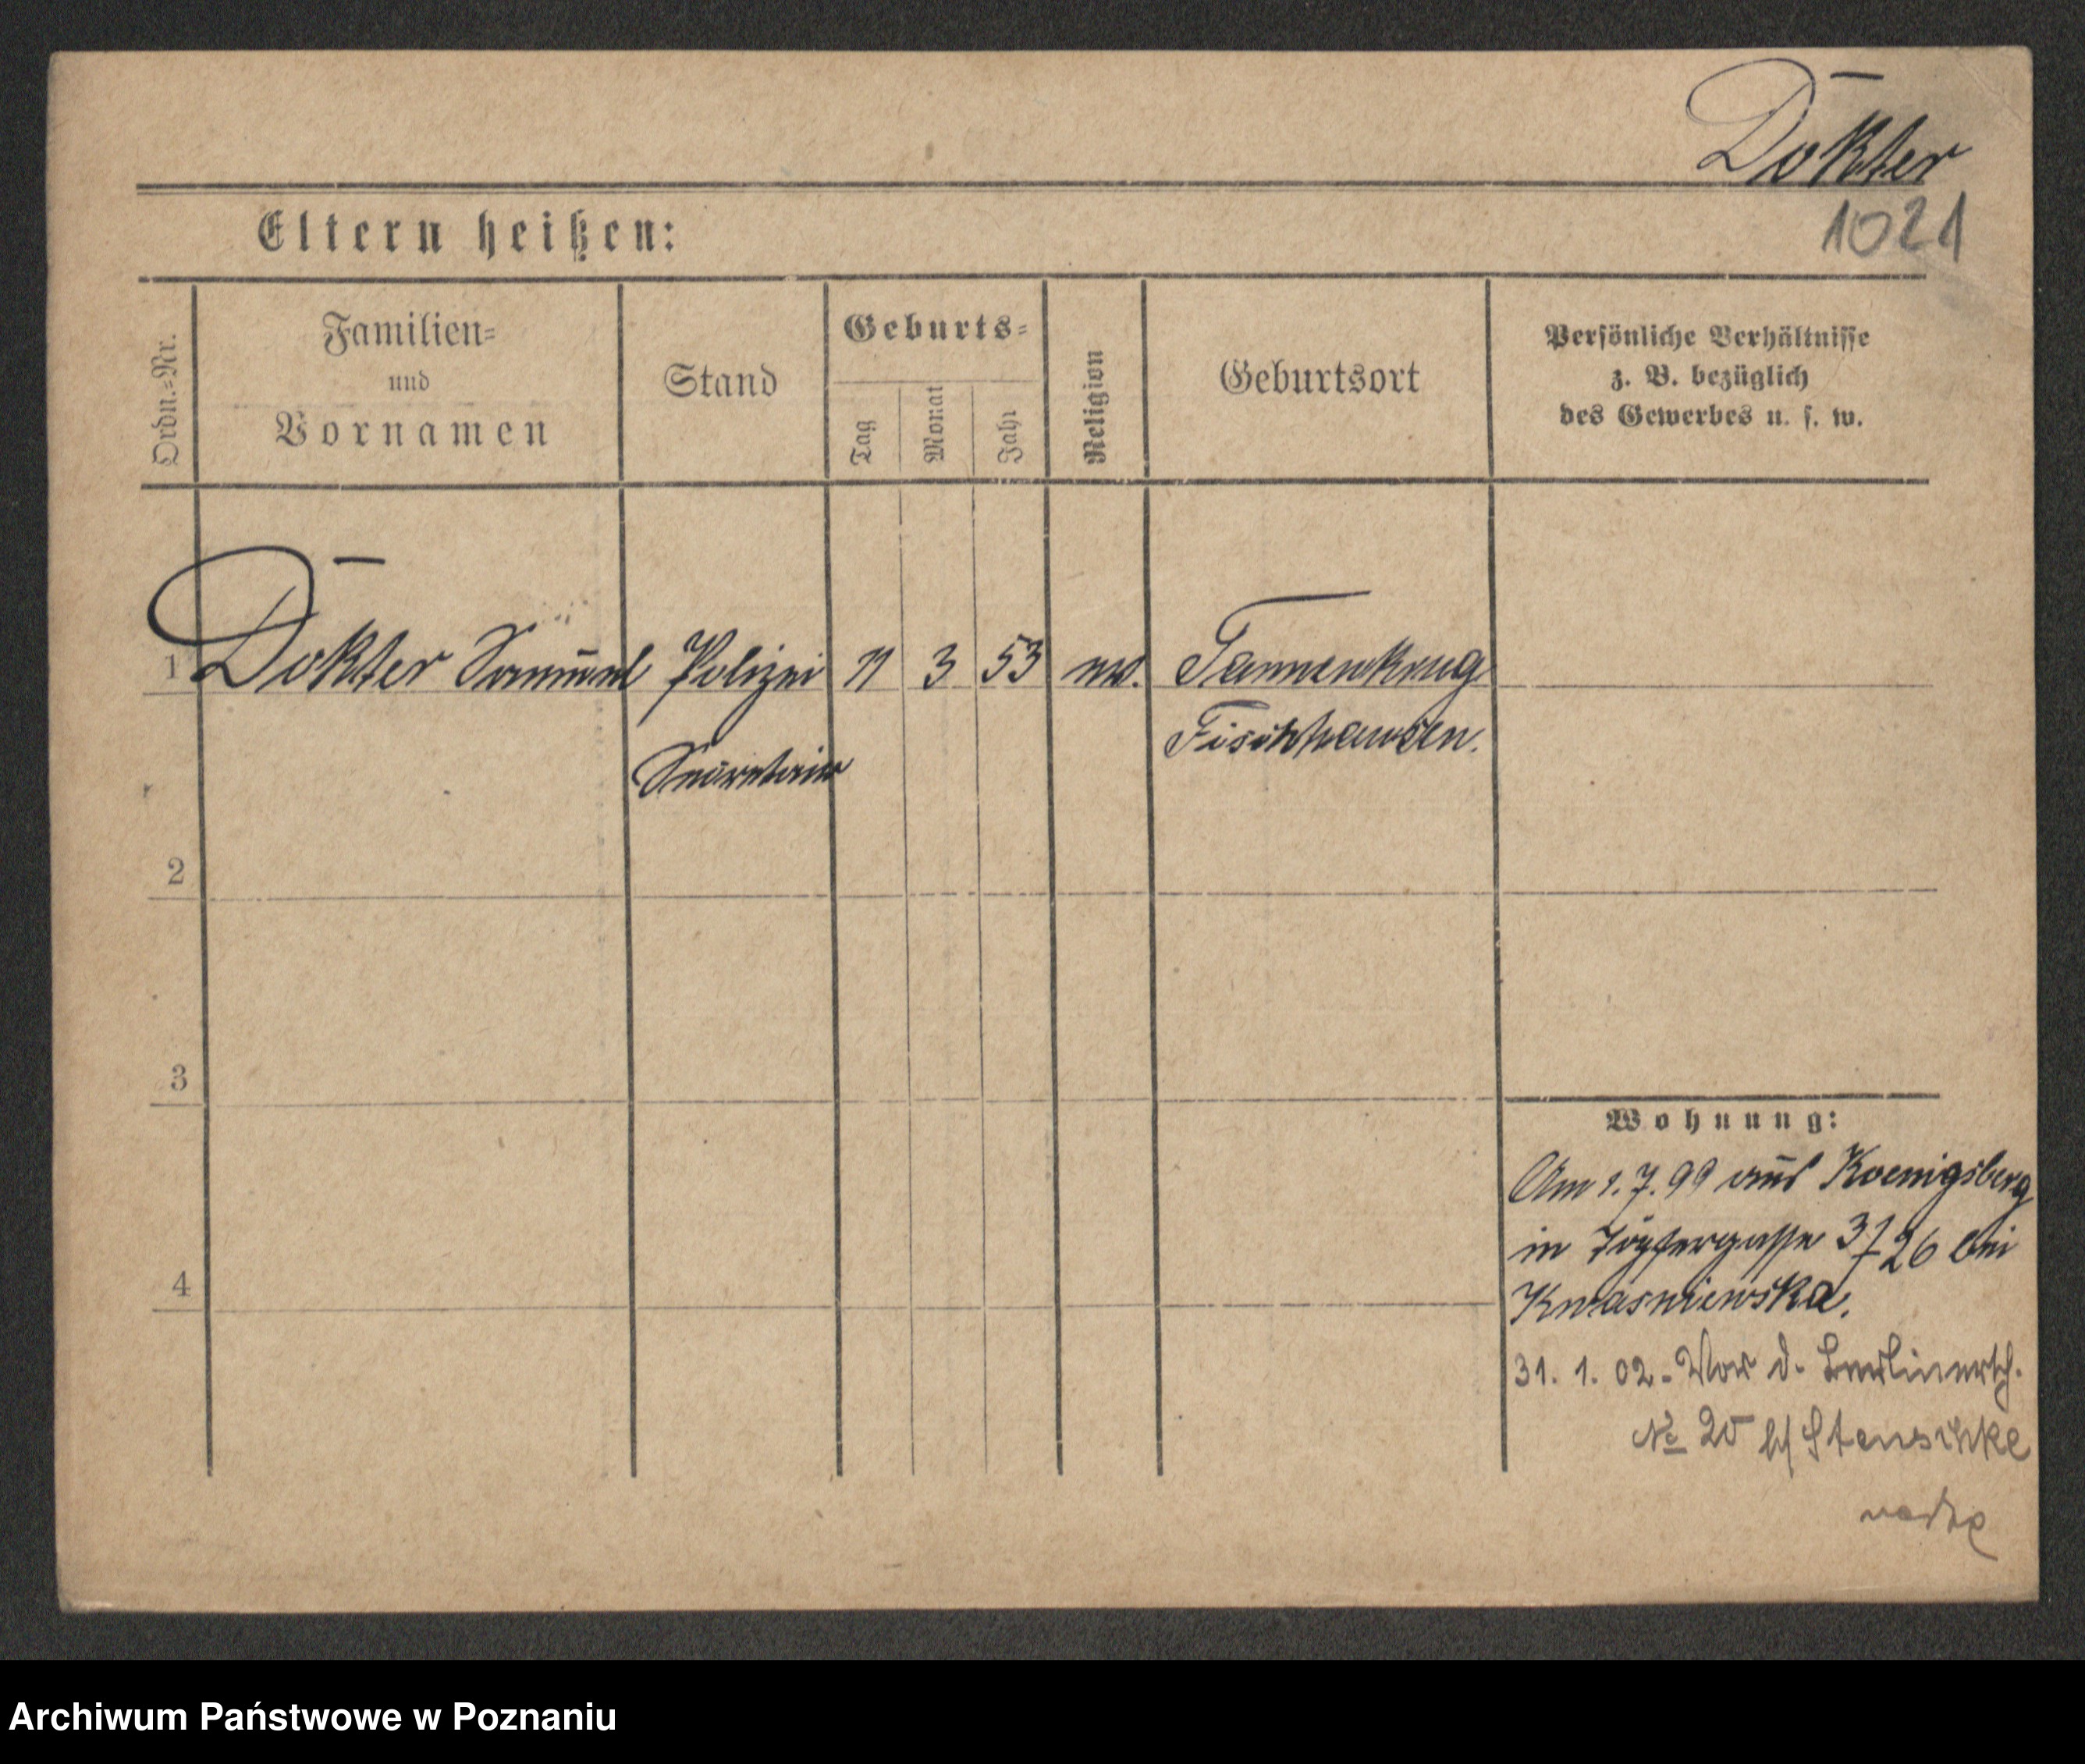 Dokter
1021
Eltern heißen:
Ordn.=Nr.
Familien=
und
Vornamen
Stand
Geburts=
Tag
Monat
Jahr
Religion
Geburtsort
Persönliche Verhältnisse
z. B. bezüglich
des Gewerbes u. s. w.
1 Dokter Samuel Polizei 11 3 53 ev. Tannenkrug
Secretair Fischhausen.
2
3
4
Wohnung:
Am 1.7.99 aus Koenigsberg
in Töpfergasse 3/26 bei
Kwasniewska.
31. 1. 02 - Vor d. Berlinerth.
No 20 b/ Stenschke
Archiwum Państwowe w Poznaniu